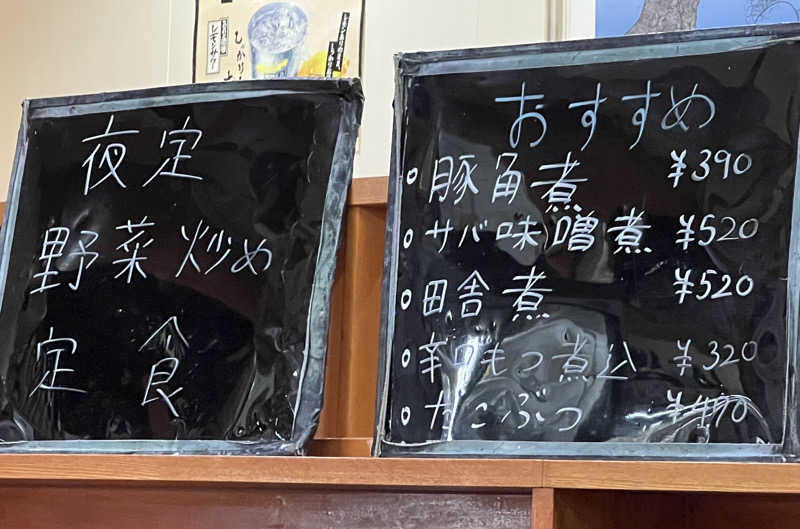 夜定
野菜炒め
定食
おすすめ
豚角煮 ¥390
サバ味噌煮 ¥520
田舎煮 ¥520
辛口もつ煮込 ¥320
たこぶつ ¥490
レモンサワー